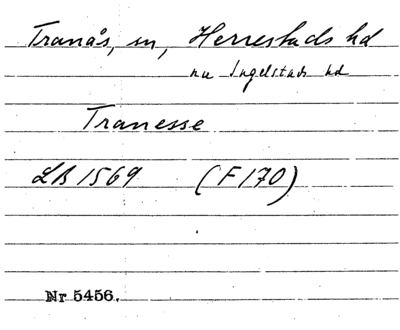 Tranås, sn, Herrestads hd
nu Ingelstads hd
Tranesse
LB 1569 (F 170)
Nr 5456.